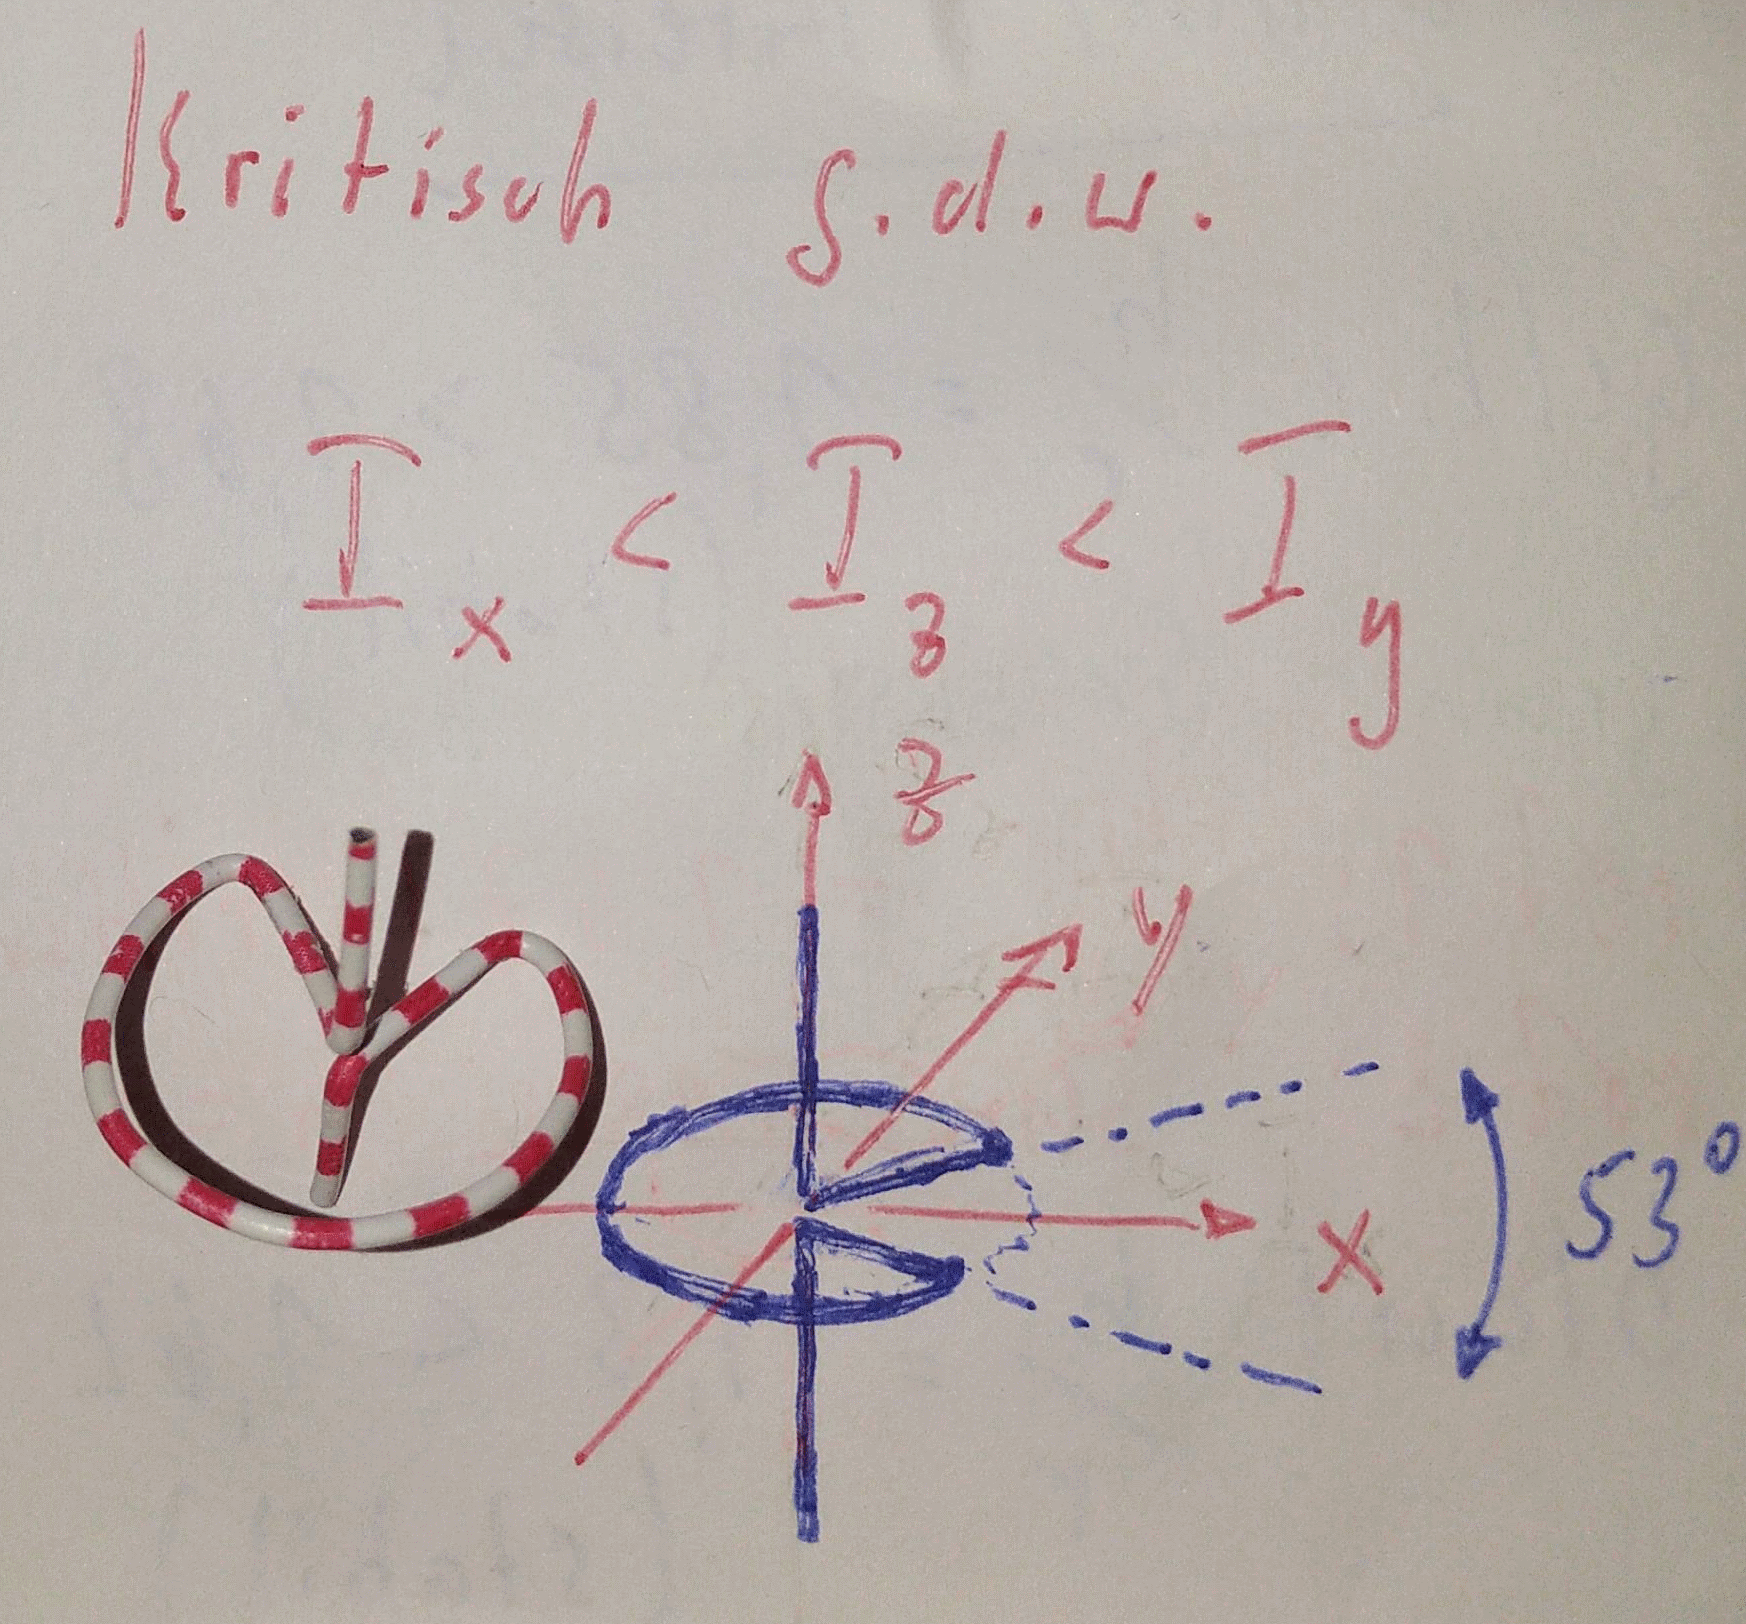 Kritisch g.d.w.
I_x < I_z < I_y
z
y
x
53°